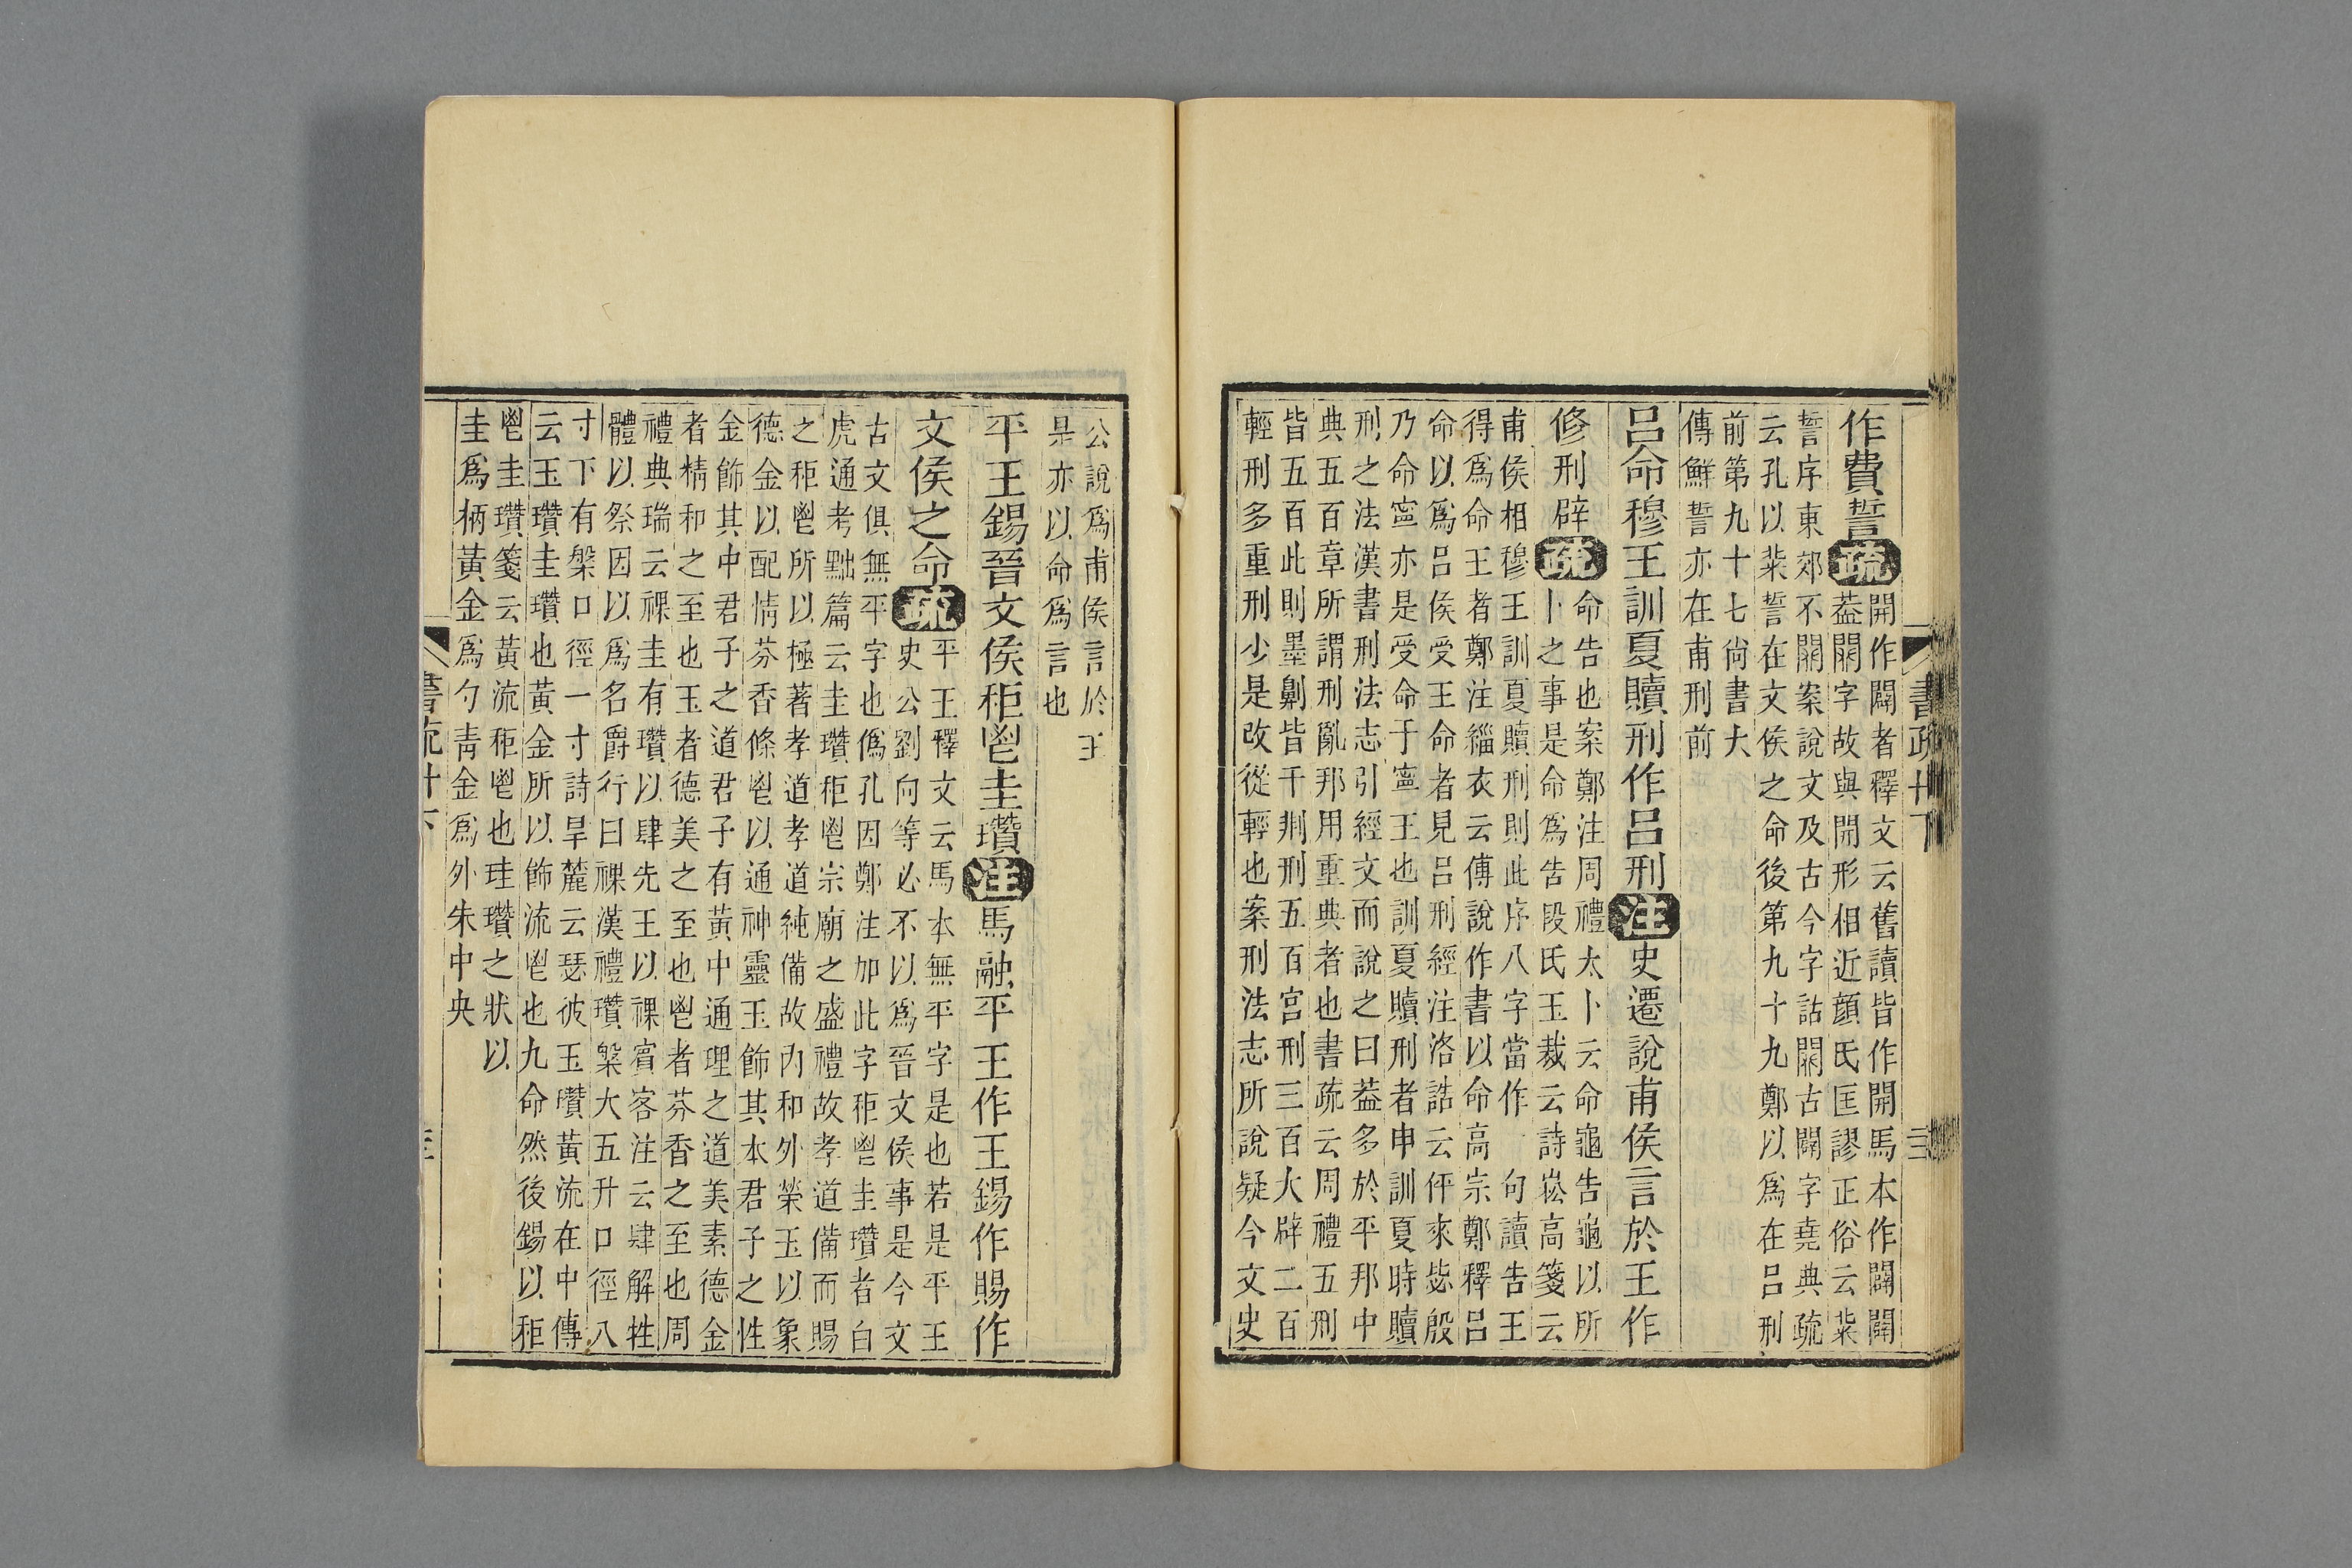 作費誓疏
開作闢者釋文云舊讀皆作開馬本作闢闢
葢闢字故與開形相近顔氏匡謬正俗云粊
誓序東郊不闢案說文及古今字詁闢古闢字堯典疏
云孔以粊誓在文侯之命後第九十九鄭以爲在吕刑
前第九十七尙書大
傳鮮誓亦在甫刑前
吕命穆王訓夏贖刑作吕刑注史遷說甫侯言於王作
修刑辟疏
命告也案鄭注周禮大卜云命龜告龜以所
卜之事是命爲告段氏玉裁云詩崧高箋云
甫侯相穆王訓夏贖刑則此序八字當作 句讀告王
得爲命王者鄭注緇衣云傳說作書以命高宗鄭釋吕
命以爲吕侯受王命者見吕刑經注洛誥云伻來毖殷
乃命寧亦是受命于寧王也訓夏贖刑者申訓夏時贖
刑之法漢書刑法志引經文而說之曰葢多於平邦中
典五百章所謂刑亂邦用重典者也書疏云周禮五刑
皆五百此則墨劓皆千剕刑五百宫刑三百大辟二百
輕刑多重刑少是改從輕也案刑法志所說疑今文史
書疏卅下
三
公說爲甫侯言於王
是亦以命爲言也
平王錫晉文侯秬鬯圭瓚注馬融平王作王錫作賜作
文侯之命疏
平王釋文云馬本無平字是也若是平王
史公劉向等必不以爲晉文侯事是今文
古文俱無平字也僞孔因鄭注加此字秬鬯圭瓚者白
虎通考黜篇云圭瓚秬鬯宗廟之盛禮故孝道備而賜
之秬鬯所以極著孝道孝道純備故內和外榮玉以象
德金以配情芬香條鬯以通神靈玉飾其本君子之性
金飾其中君子之道君子有黃中通理之道美素德金
者精和之至也玉者德美之至也鬯者芬香之至也周
禮典瑞云祼圭有瓚以肆先王以祼賓客注云肆解牲
體以祭因以爲名爵行曰祼漢禮瓚槃大五升口徑八
寸下有槃口徑一寸詩旱麓云瑟彼玉瓚黃流在中傳
云玉瓚圭瓚也黃金所以飾流鬯也九命然後錫以秬
鬯圭瓚箋云黃流秬鬯也珪瓚之狀以
圭爲柄黃金爲勺靑金爲外朱中央